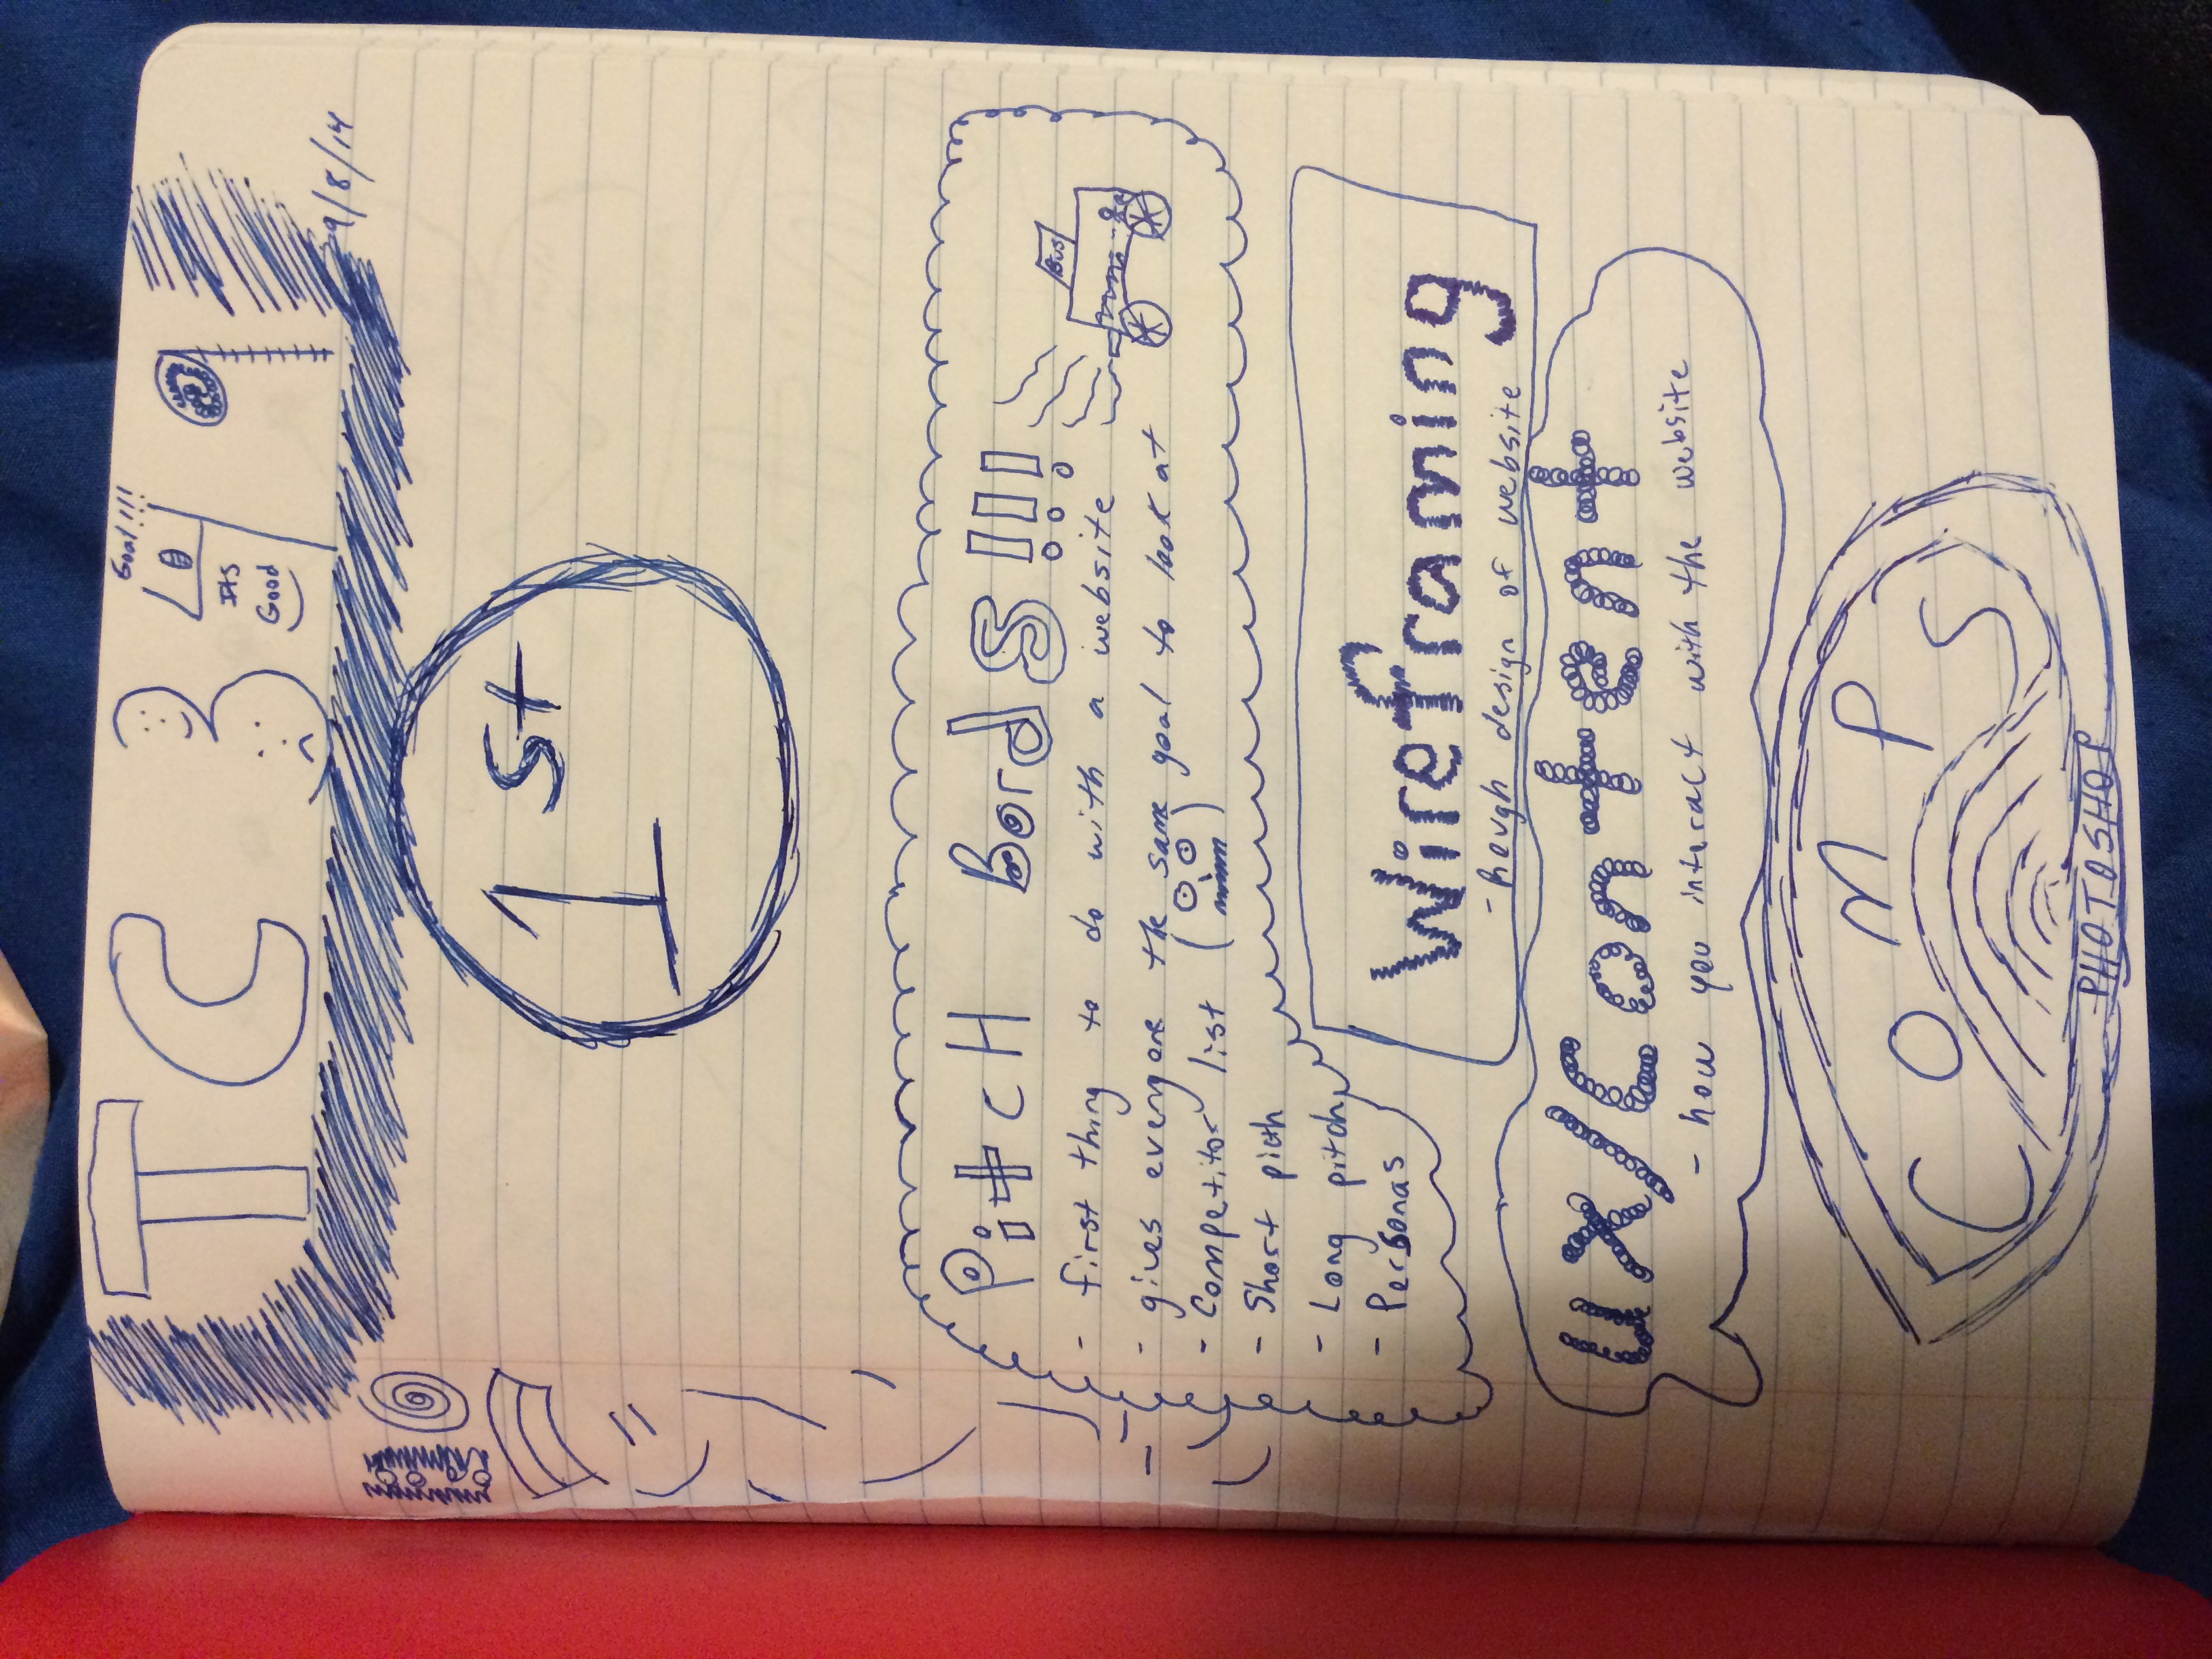 Goal!!!!
ICB
Its
Good
9/8/14
1st
PitcH Bords!!!
Bus
- first thing to do with a website
- gives everyone the same goal to look at
- Competitor list
- Short picth
- Long pitch
- Personas
Wireframing
- hough design of website
UX/Content
- how you intract with the website
COMPS
PHOTOSHOP